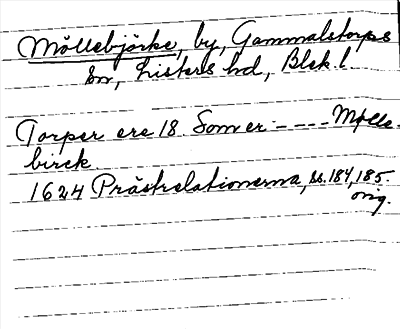 Möllebjörke, by, Gammalstorps
sn, Listers hd, Blek. l.
Torper ere 18. Som er - - - - Mølle-
birck
1624 Prästrelationerna, ss. 184, 185
orig.